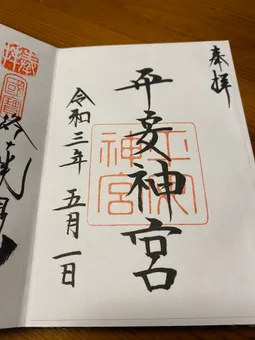 奉拝
平安神宮
平安
神宮
令和三年 五月一日
國寶